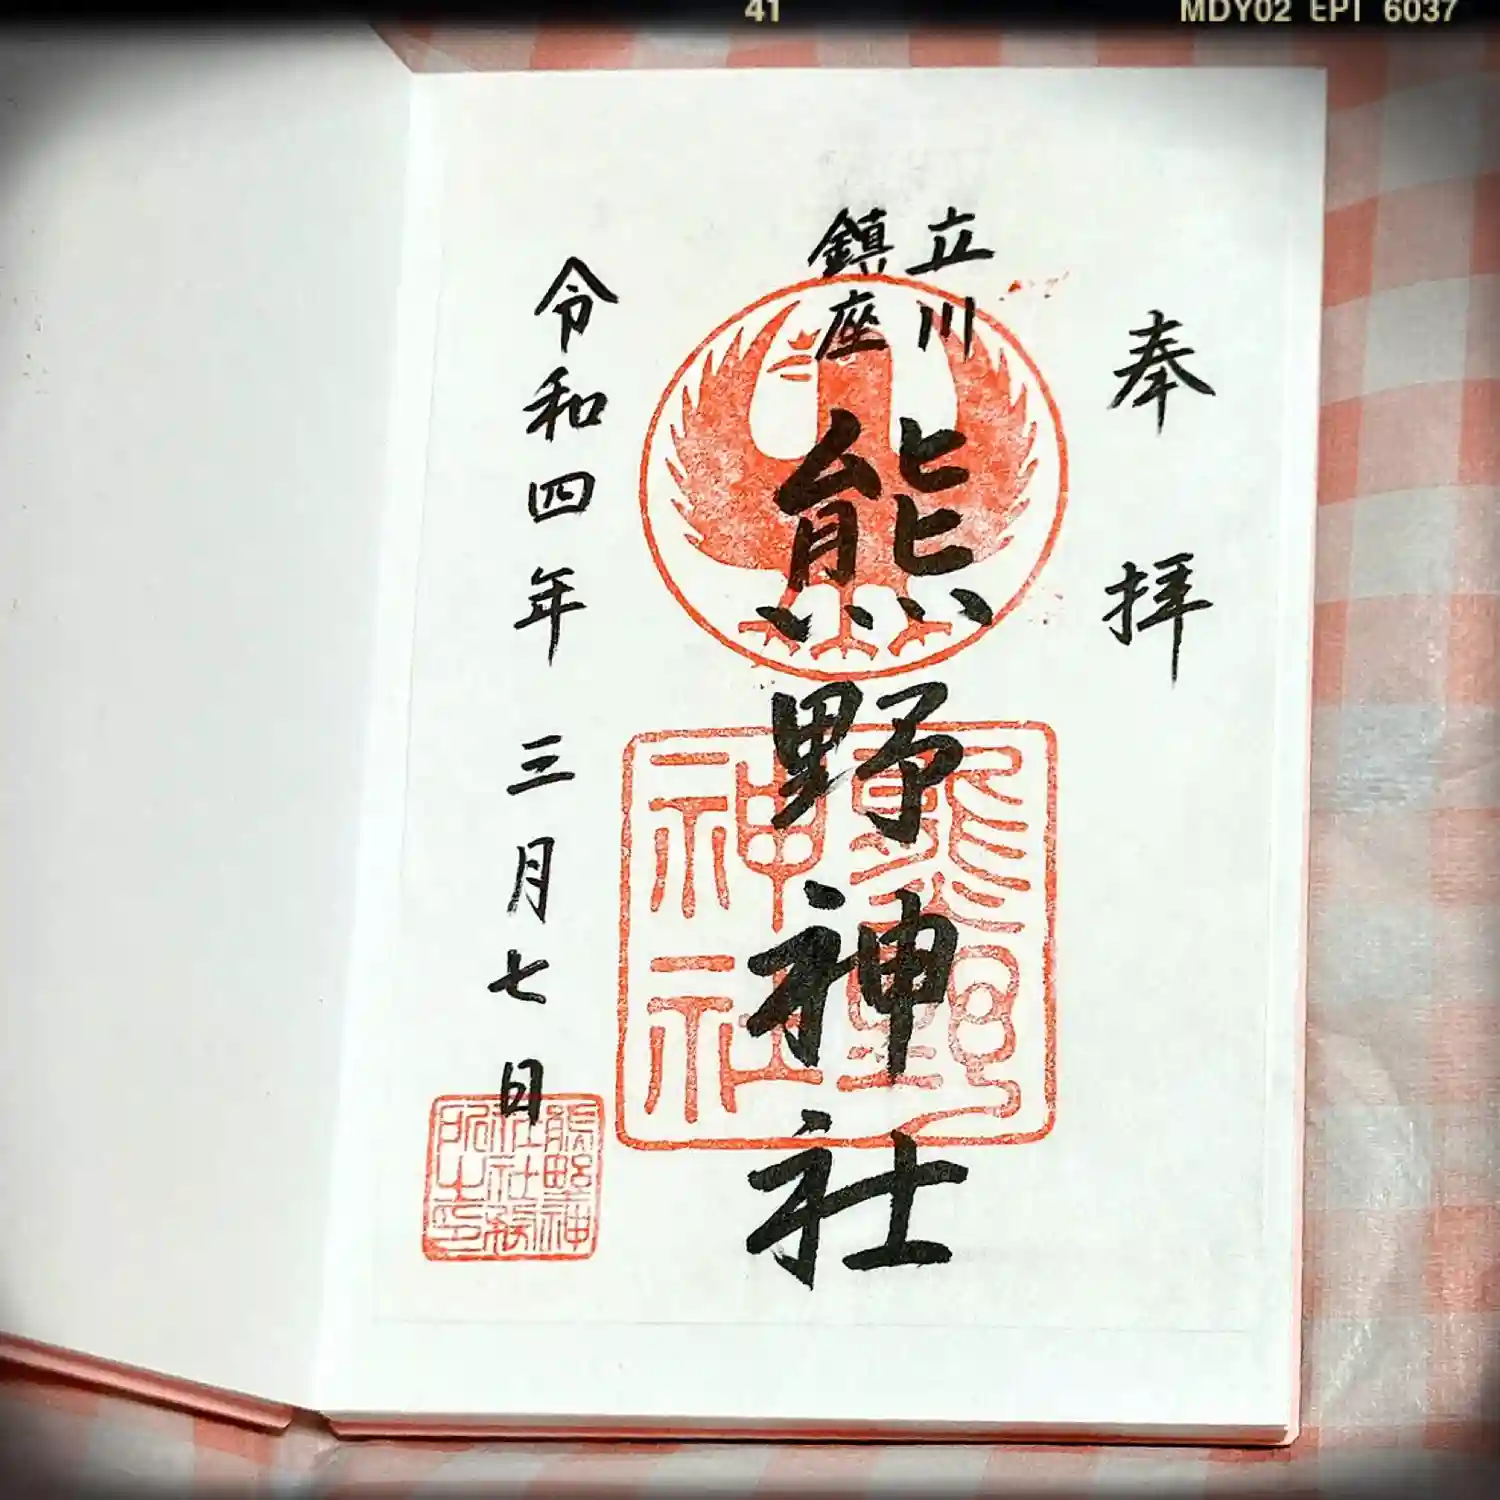 41
MDY02 EPT 6037
奉拝
立川
鎮座
熊野神社
令和四年 三月七日
熊野
神社
熊野神
社社務
所之印